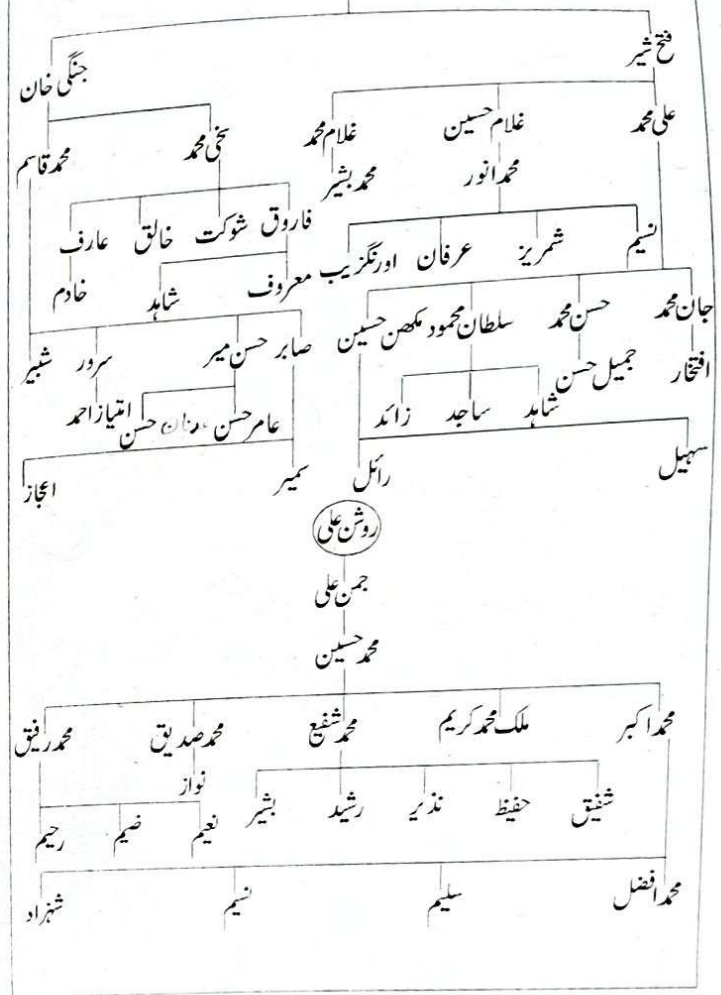 فتح شیر جنگی خان
علی محمد غلام حسین غلام محمد سخی محمد محمد قاسم
محمد انور محمد بشیر
نسیم شمریز عرفان اورنگزیب فاروق شوکت خالق عارف
معروف شاہد خادم
جان محمد حسن محمد سلطان محمود مکھن حسین صابر حسن میر سرور شبیر
افتخار جمیل حسن
شاہد ساجد زائد عامر حسن حسن امتیاز احمد
سہیل رائل سمیر اعجاز
روشن علی
جمن علی
محمد حسین
محمد اکبر ملک محمد کریم محمد شفیع محمد صدیق محمد رفیق
نواز
شفیق حفیظ نذیر رشید بشیر نعیم ضیم رحیم
محمد افضل سلیم نسیم شہزاد